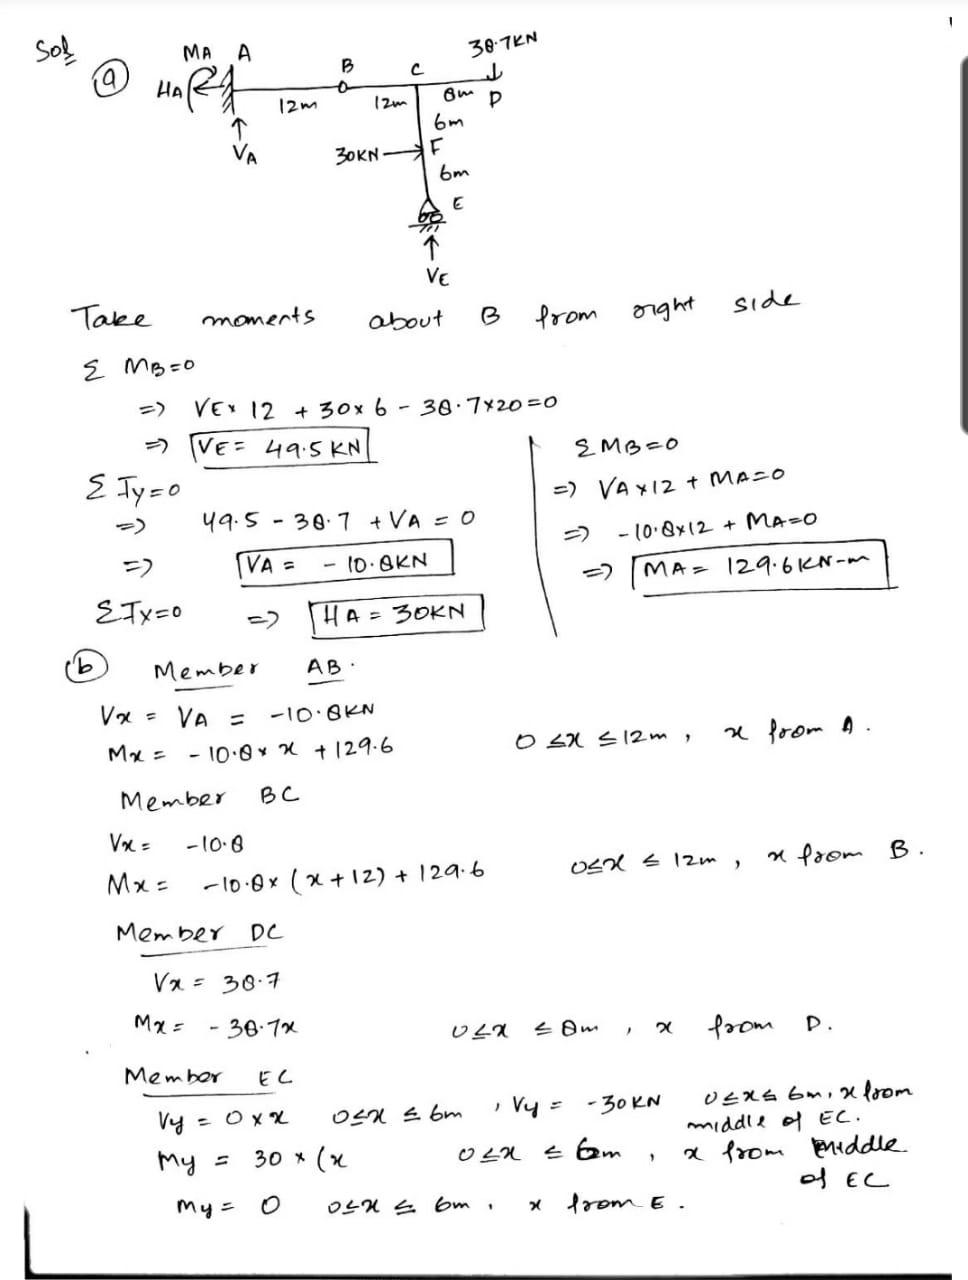 Sol
(a) MA A B C 38.7KN
HA 12m 12m 8m D
VA 30KN F 6m
6m
E
VE
Take moments about B from right side
Σ MB=0
=> VE× 12 + 30×6 - 38.7×20=0
=> VE= 49.5 KN
Σ Fy=0
=> 49.5 - 38.7 + VA = 0
=> VA = - 10.8KN
ΣFx=0 => HA = 30KN
ΣMB=0
=> VA×12 + MA=0
=> -10.8×12 + MA=0
=> MA= 129.6KN-m
(b) Member AB.
Vx = VA = -10.8KN
Mx= -10.8× x +129.6 0≤x≤12m, x from A.
Member BC
Vx= -10.8
Mx= -10.8×(x+12)+129.6 0≤x≤12m, x from B.
Member DC
Vx= 38.7
Mx= -38.7x 0≤x≤8m, x from D.
Member EC
Vy=0×x 0≤x≤6m, Vy= -30KN 0≤x≤6m, x from
middle of EC.
My = 30×(x 0≤x≤6m, x from Middle
of EC
My= 0 0≤x≤6m, x from E.